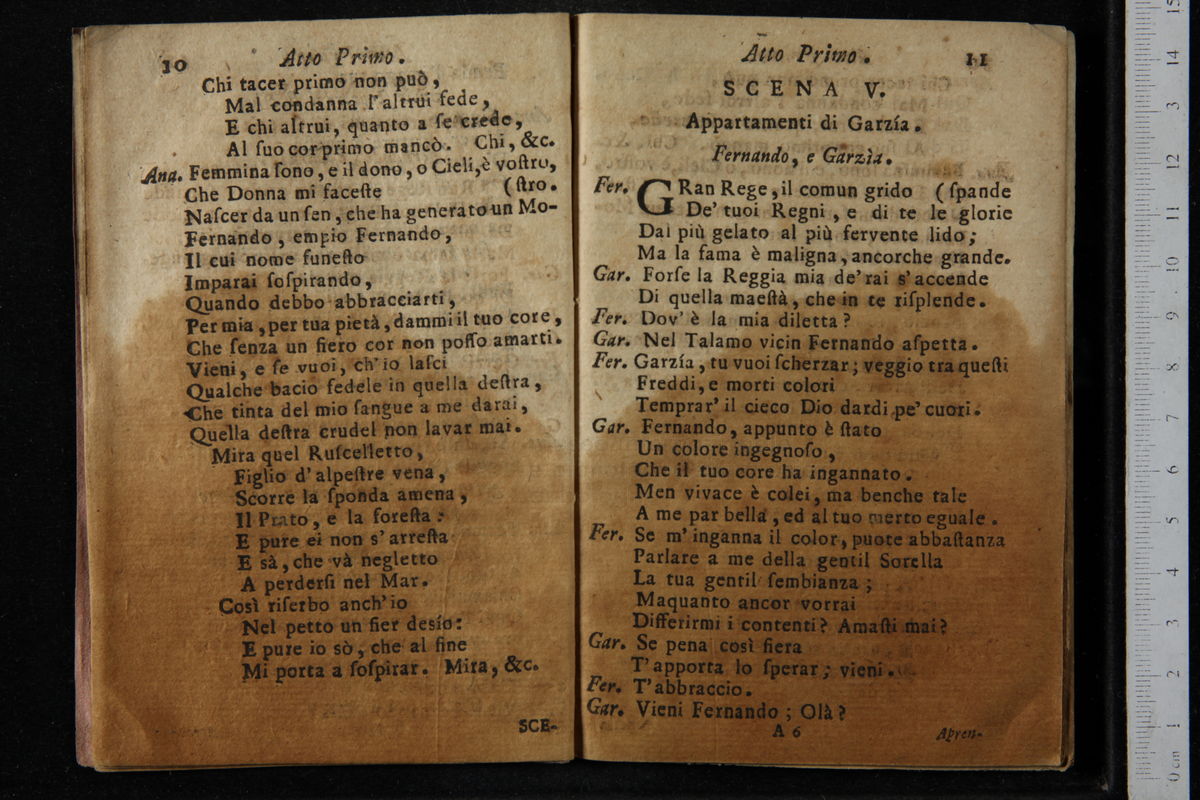 10 Atto Primo.
Chi tacer primo non può,
Mal condanna l'altrui fede,
E chi altrui, quanto a ſe crede,
Al ſuo cor primo mancò. Chi, &c.
Ana. Femmina ſono, e il dono, o Cieli, è voſtro,
Che Donna mi faceſte (ſtro.
Naſcer da un ſen, che ha generato un Mo-
Fernando, empio Fernando,
Il cui nome funeſto
Imparai ſoſpirando,
Quando debbo abbracciarti,
Per mia, per tua pietà, dammi il tuo core,
Che ſenza un fiero cor non poſſo amarti.
Vieni, e ſe vuoi, ch'io laſci
Qualche bacio fedele in quella deſtra,
Che tinta del mio ſangue a me darai,
Quella deſtra crudel non lavar mai.
Mira quel Ruſcelletto,
Figlio d'alpeſtre vena,
Scorre la ſponda amena,
Il Prato, e la foreſta:
E pure ei non s'arreſta
E sà, che và negletto
A perderſi nel Mar.
Così riſerbo anch'io
Nel petto un fier desío:
E pure io sò, che al fine
Mi porta a ſoſpirar. Mira, &c.
SCE-
Atto Primo. 11
SCENA V.
Appartamenti di Garzía.
Fernando, e Garzìa.
Fer. GRan Rege, il comun grido (ſpande
De' tuoi Regni, e di te le glorie
Dal più gelato al più fervente lido;
Ma la fama è maligna, ancorche grande.
Gar. Forſe la Reggia mia de' rai s'accende
Di quella maeſtà, che in te riſplende.
Fer. Dov' è la mia diletta?
Gar. Nel Talamo vicin Fernando aſpetta.
Fer. Garzía, tu vuoi ſcherzar; veggio tra queſti
Freddi, e morti colori
Temprar' il cieco Dio dardi pe' cuori.
Gar. Fernando, appunto è ſtato
Un colore ingegnoſo,
Che il tuo core ha ingannato.
Men vivace è colei, ma benche tale
A me par bella, ed al tuo merto eguale.
Fer. Se m'inganna il color, puote abbaſtanza
Parlare a me della gentil Sorella
La tua gentil ſembianza;
Maquanto ancor vorrai
Differirmi i contenti? Amaſti mai?
Gar. Se pena così fiera
T'apporta lo ſperar; vieni.
Fer. T'abbraccio.
Gar. Vieni Fernando; Olà?
A 6 Apren-